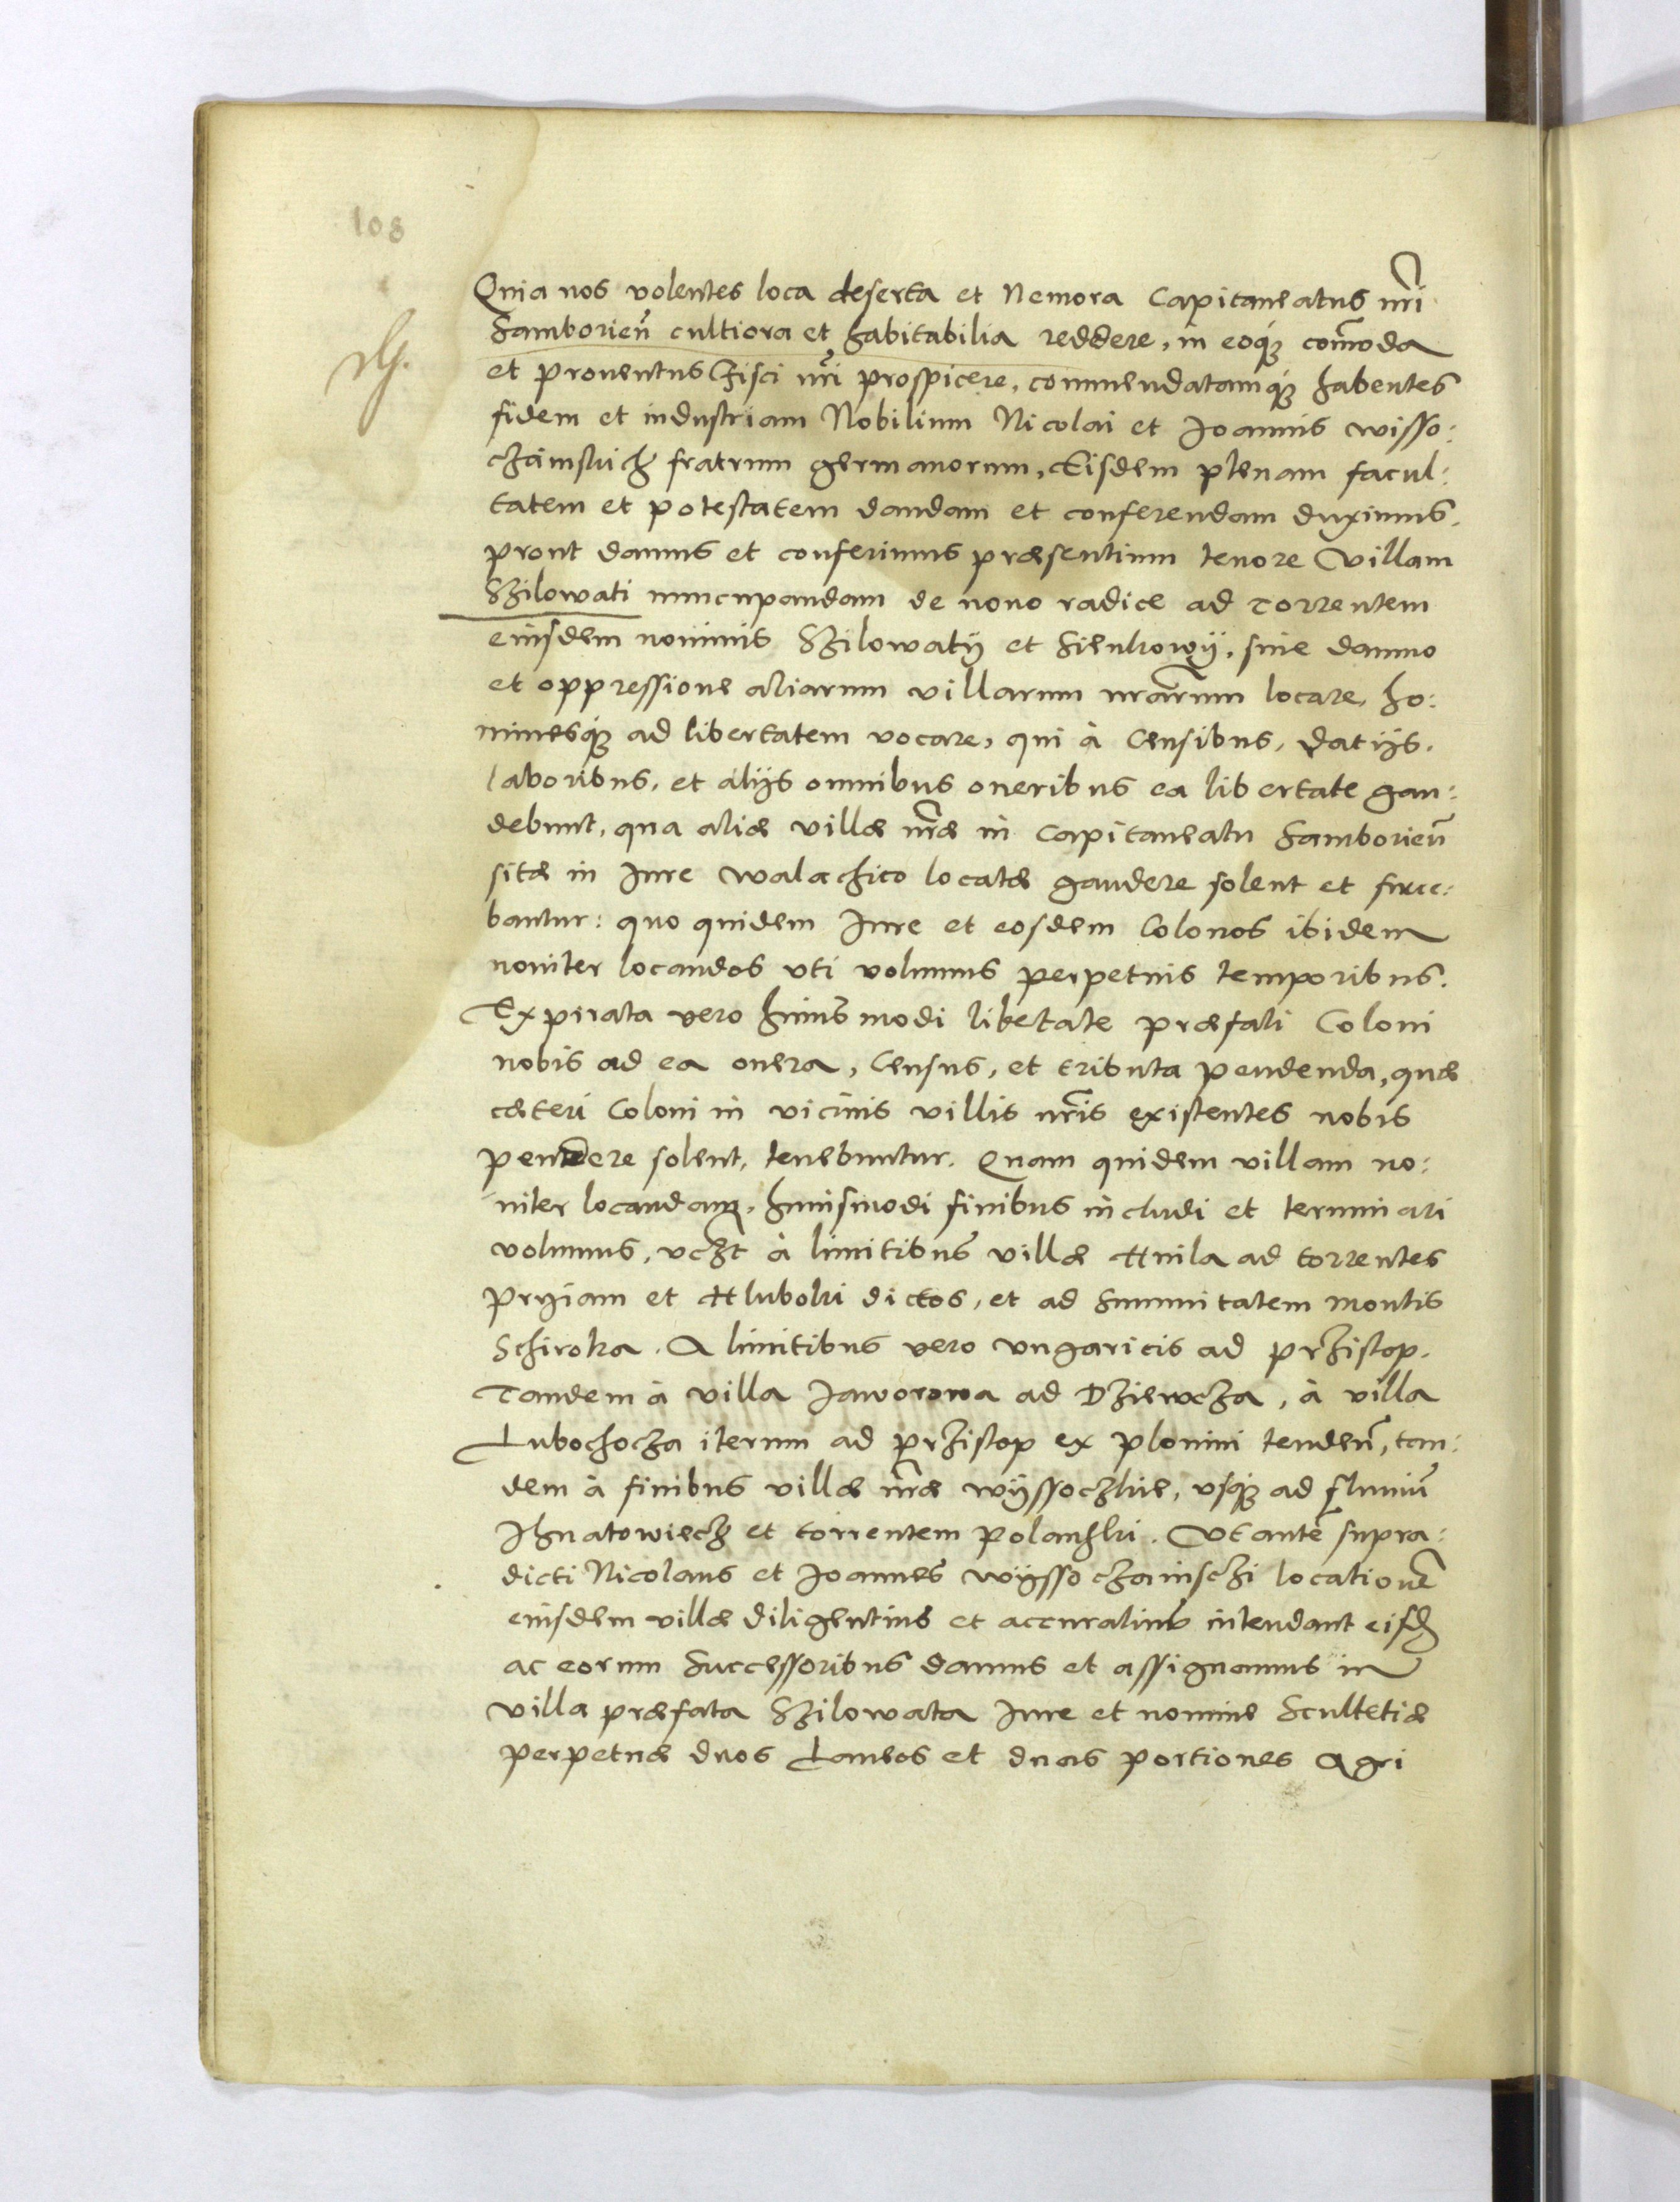 108
Quia nos volentes loca deserta et Nemora Capitaneatus nri
Samborien cultiora et habitabilia reddere, in eoque comoda
et prouentus Fisci nri prospicere, commendatamque habentes
fidem et industriam Nobilium Nicolai et Joannis Wisso:
czanskich fratrum germanorum, Eisdem plenam facul:
tatem et potestatem dandam et conferendam duximus.
prout damus et conferimus præsentium tenore Villam
Szilowati nuncupandam de nouo radice ad Torrentem
eiusdem nominis Szilowatÿ et Sienkowÿ, sine damno
et oppressione aliarum villarum nrarum locare, ho:
minesque ad libertatem vocare, qui à Censibus, Datijs,
laboribus, et alijs omnibus oneribus ea libertate gau:
debunt, qua aliæ villæ nræ in Capitaneatu Samborien
sitæ in Jure Walachico locatæ gaudere solent et frue:
bantur: quo quidem Jure et eosdem Colonos ibidem
nouiter locandos vti volumus perpetuis temporibus.
Expirata vero huiusmodi libetate præfati Coloni
nobis ad ea onera, Census, et tributa pendenda, quæ
cæteri Coloni in vicinis villis nris existentes nobis
pendere solent, tenebuntur. Quam quidem villam no:
uiter locandam, huiusmodi finibus includi et terminari
volumus, vczt à limitibus villæ Hnila ad torrentes
Pryiam et Hluboki dictos, et ad Summitatem montis
Schiroka. A limitibus vero vngaricis ad przistop.
Tandem à villa Jaworowa ad Dziewcza, à villa
Lubochocza iterum ad przistop ex plonini tenden, tan:
dem à finibus villæ nræ Wÿssoczkie, vsque ad fluuiu
Ihnatowiecz et torrentem Polanski. Vt ante supra:
dicti Nicolaus et Joannes Wÿssoczainschi locatione
eiusdem villæ diligentius et accuratius intendant eisd
ac eorum Successoribus damus et assignamus in
villa præfata Szilowata Jure et nomine Scultetiæ
perpetuæ duos Laneos et duas portiones Agri